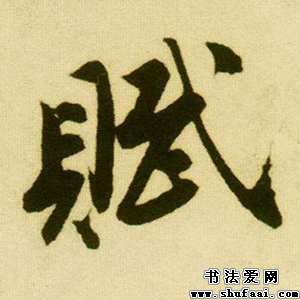 賦
书法爱网
www.shufaai.com